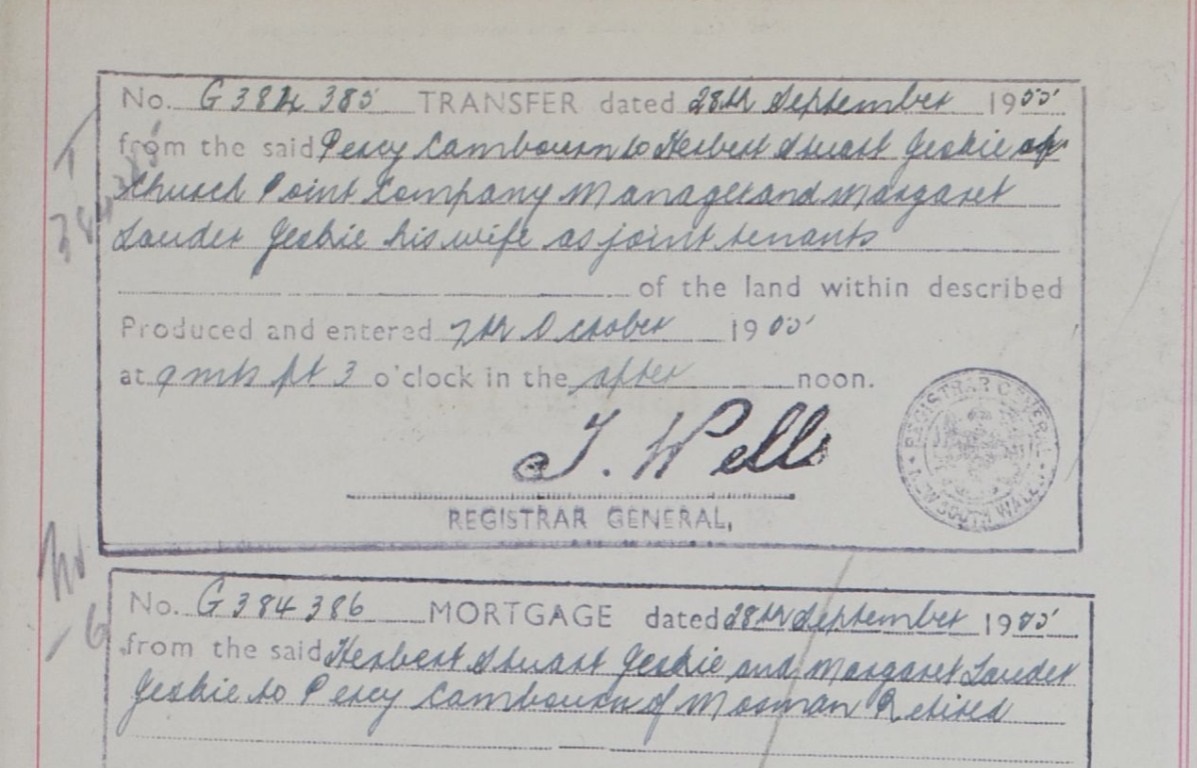 No. G384 385 TRANSFER dated 28th September 1955
from the said Percy Cambourn to Herbert Stuart Geskie of
Church Point Company Manager and Margaret
Lauder Geskie his wife as joint tenants
of the land within described
Produced and entered 7th October 1955
at 9 mts pt 3 o'clock in the after noon.
J. Wells
REGISTRAR GENERAL,
REGISTRAR GENERAL
NEW SOUTH WALES
No. G384386 MORTGAGE dated 28th September 1955
from the said Herbert Stuart Geskie and Margaret Lauder
Geskie to Percy Cambourn of Mosman Retired